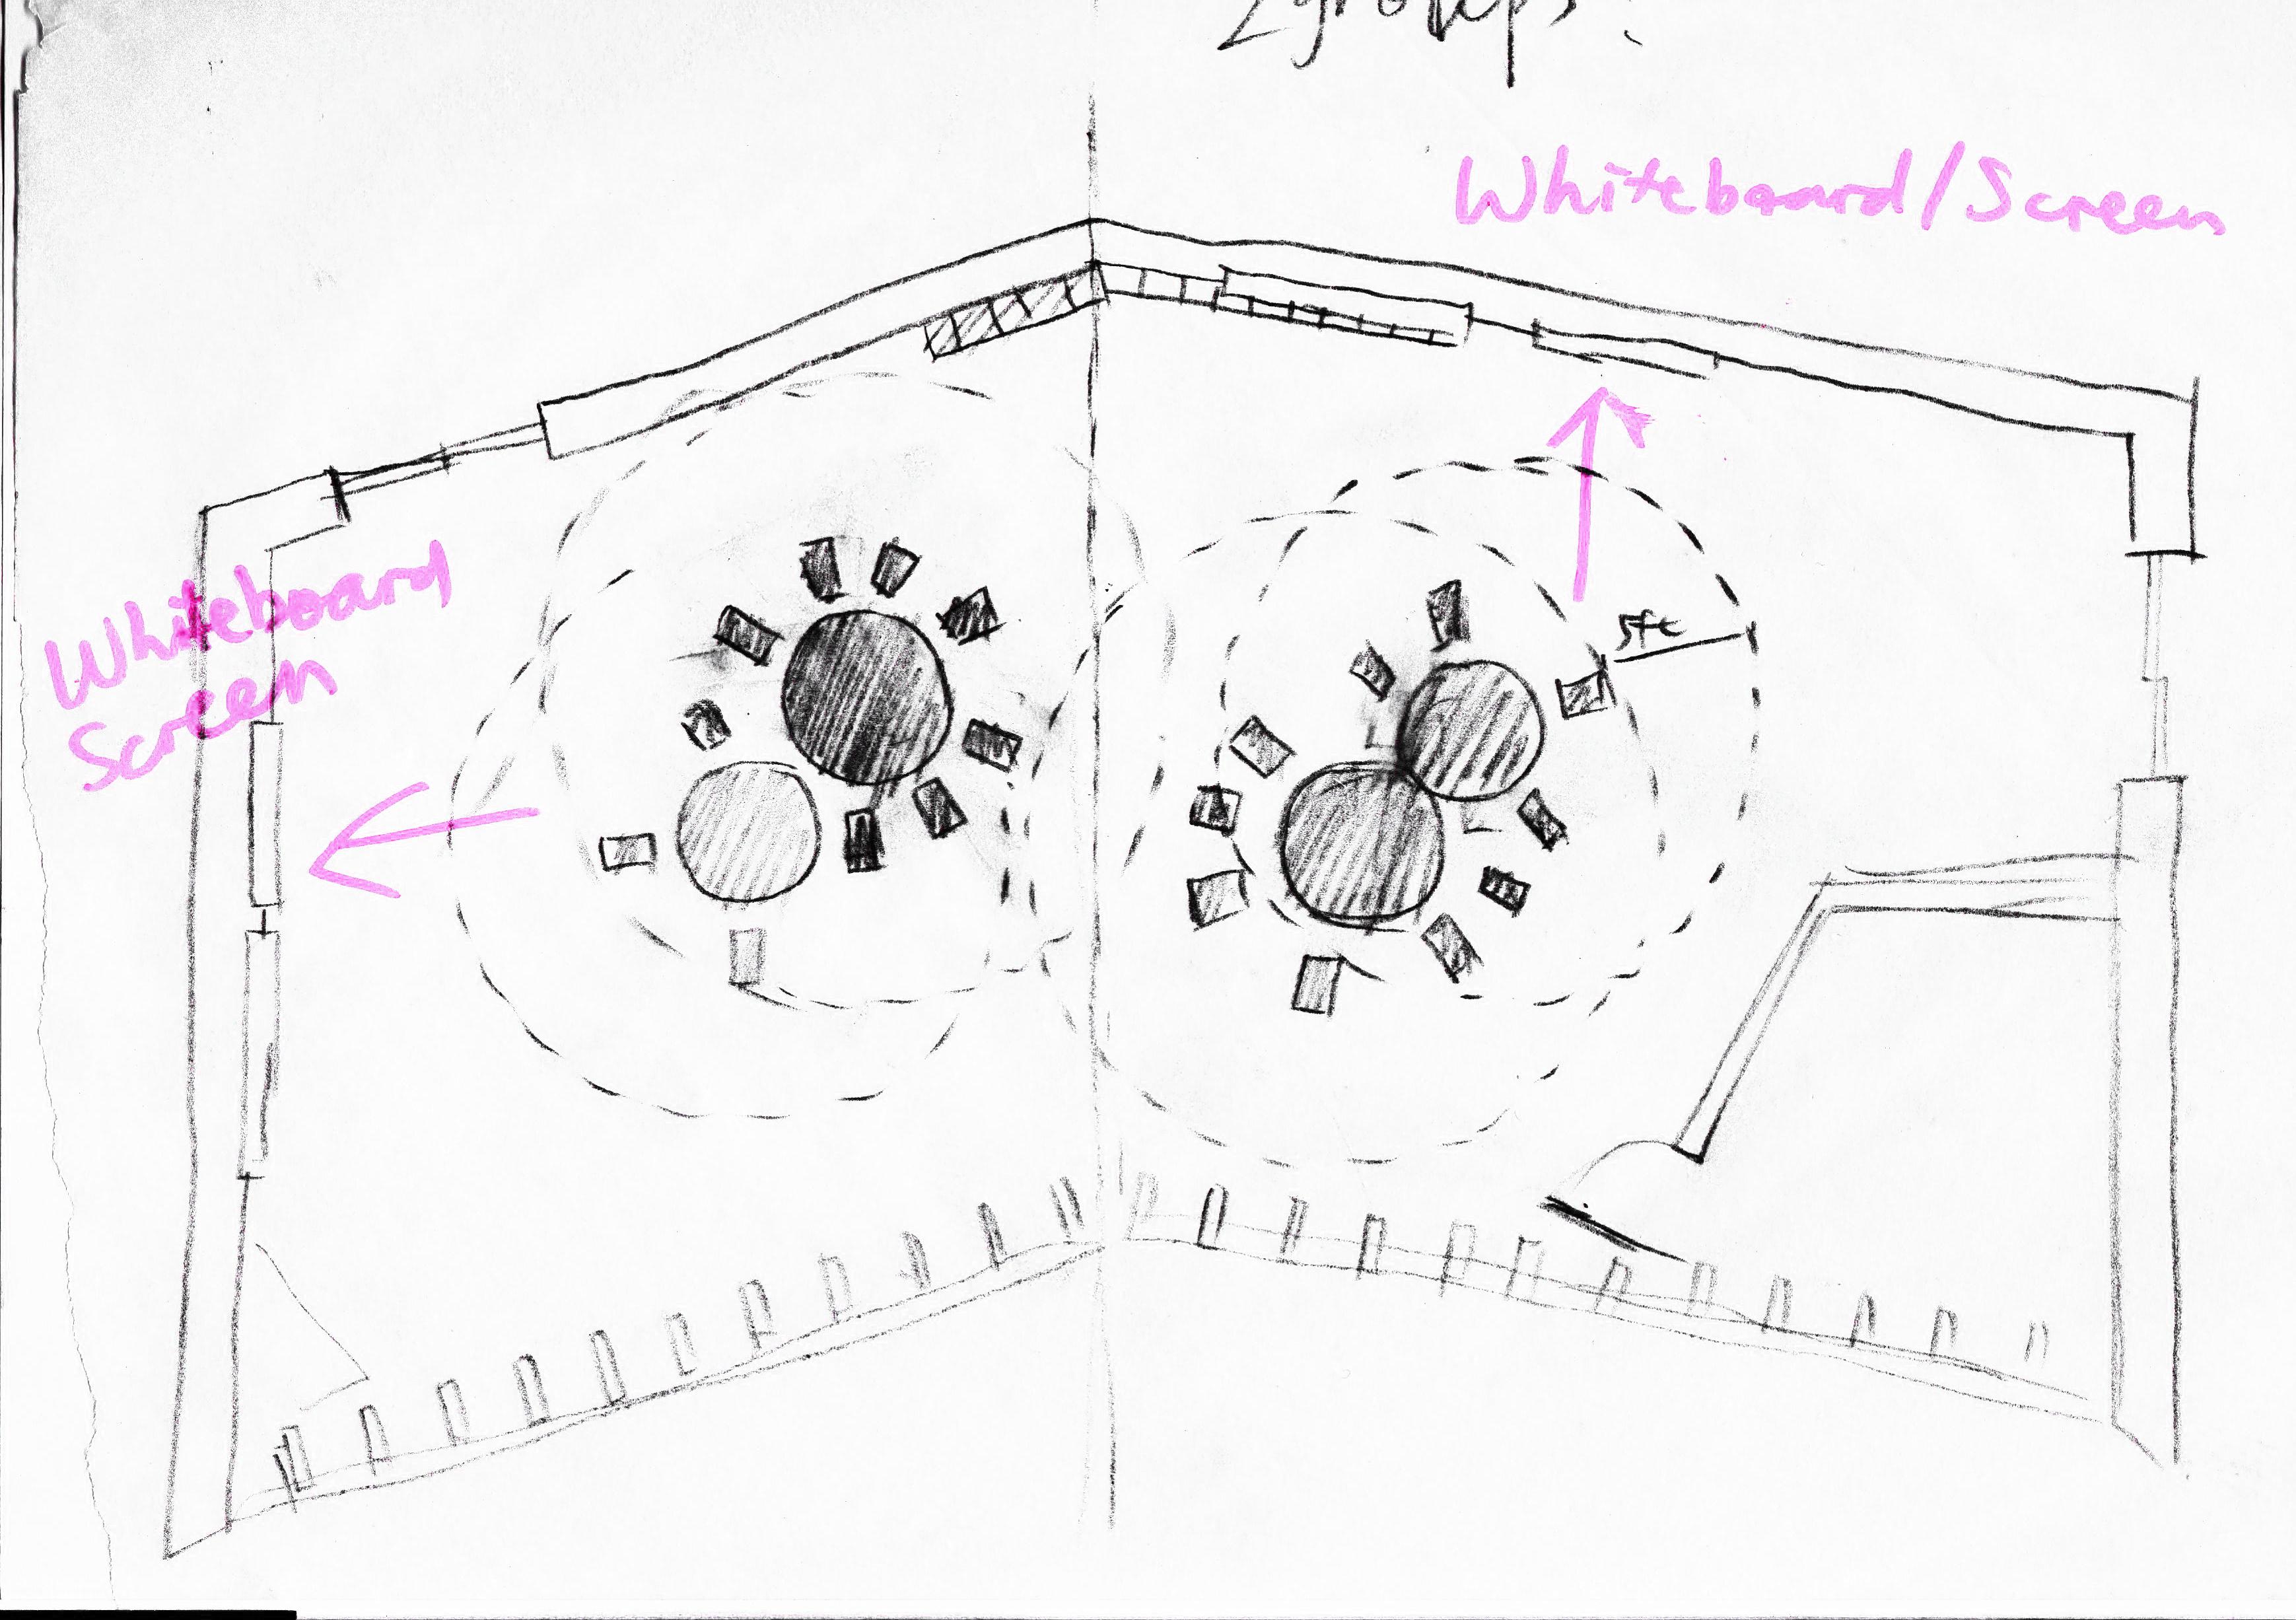 2groups:
Whiteboard/Screen
Whiteboard
Screen
5ft